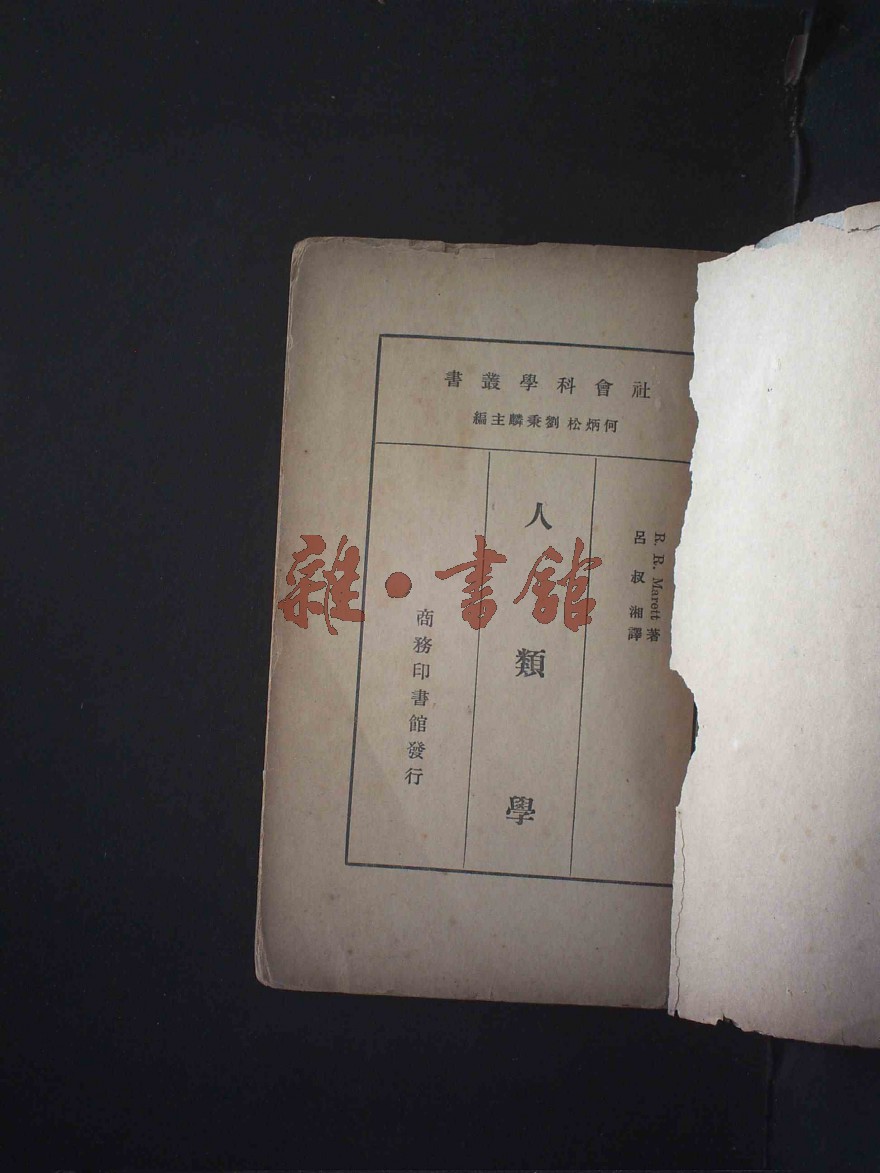 社會科學叢書
何炳松 劉秉麟主編
R. R. Marett 著
呂叔湘譯
人類學
商務印書館發行
雜·書館